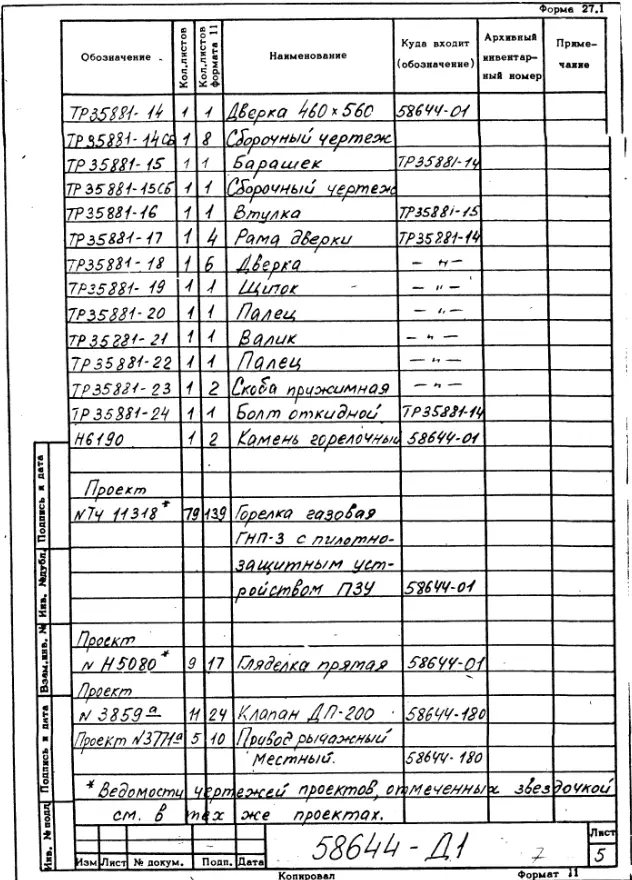 Форма 27.1
Обозначение Кол.листов Кол.листов формата 11 Наименование Куда входит (обозначение) Архивный инвентарный номер Примечание
ТР35881-14 1 1 Дверка 460 x 560 58644-01
ТР35881-14СБ 1 8 Сборочный чертеж
ТР35881-15 1 1 Барашек ТР35881-14
ТР35881-15СБ 1 1 Сборочный чертеж
ТР35881-16 1 1 Втулка ТР35881-15
ТР35881-17 1 4 Рама дверки ТР35881-14
ТР35881-18 1 6 Дверка — " —
ТР35881-19 1 1 Щиток — " —
ТР35881-20 1 1 Палец — " —
ТР35881-21 1 1 Валик — " —
ТР35881-22 1 1 Палец — " —
ТР35881-23 1 2 Скоба прижимная — " —
ТР35881-24 1 1 Болт откидной ТР35881-14
Н6190 1 2 Камень горелочный 58644-01
Проект
№ТЧ 11318* 79 139 Горелка газовая
ГНП-3 с пилотно-
защитным уст-
ройством ПЗУ 58644-01
Проект
№ Н5080* 9 17 Гляделка прямая 58644-01
Проект
№ 3859а 11 24 Клапан ДП-200 58644-180
Проект №3771а 5 10 Привод рычажный
местный. 58644-180
* Ведомости чертежей проектов, отмеченных звездочкой
см. в тех же проектах.
Инв. № подл. Подпись и дата Взам.инв. № Инв. №дубл. Подпись и дата
58644-Д1 7
Лист
5
Изм Лист № докум. Подп. Дата
Копировал Формат 11